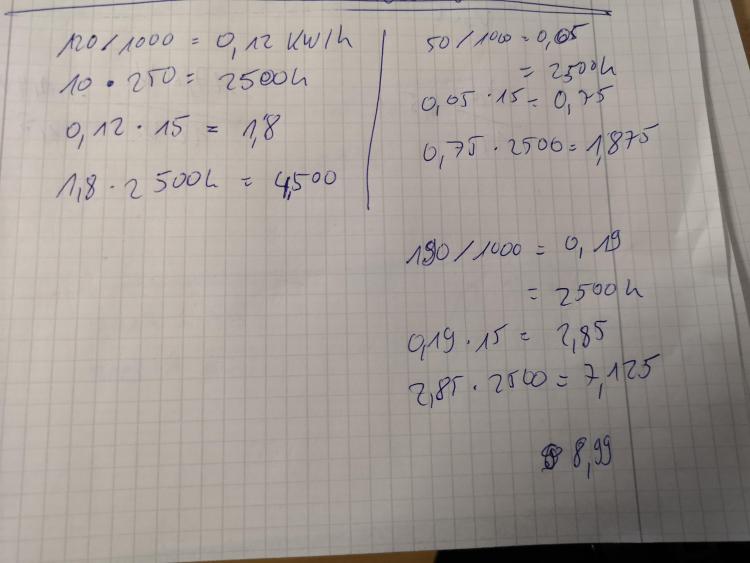 120/1000 = 0,12 KW/h
10 • 250 = 2500h
0,12 · 15 = 1,8
1,8 · 2500h = 4,500
50/1000 = 0,05
= 2500h
0,05 · 15 = 0,75
0,75 · 2500 = 1,875
190/1000 = 0,19
= 2500h
0,19 · 15 = 2,85
2,85 · 2500 = 7,125
8,99